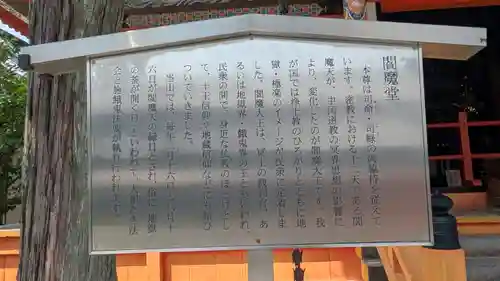 閻魔堂
本尊は司命・司録の両脇侍を従えて
います。密教における十二天である閻
魔天が、中国道教の冥界思想の影響に
より、変化したのが閻魔大王です。我
が国では浄土教のひろがりとともに地
獄・極楽のイメージが民衆に定着しま
した。閻魔大王は、冥土の救済者、あ
るいは地獄界・餓鬼界の王といわれ、
民衆の間で、身近な仏教のほとけとし
て、十王信仰や地蔵信仰などにも結び
ついていきました。
当山では、毎年一月十六日と八月十
六日が閻魔天の縁日とされ、俗に「地獄
の釜が開く日」といわれて、大般若転読
会と施餓鬼供養が執り行われます。